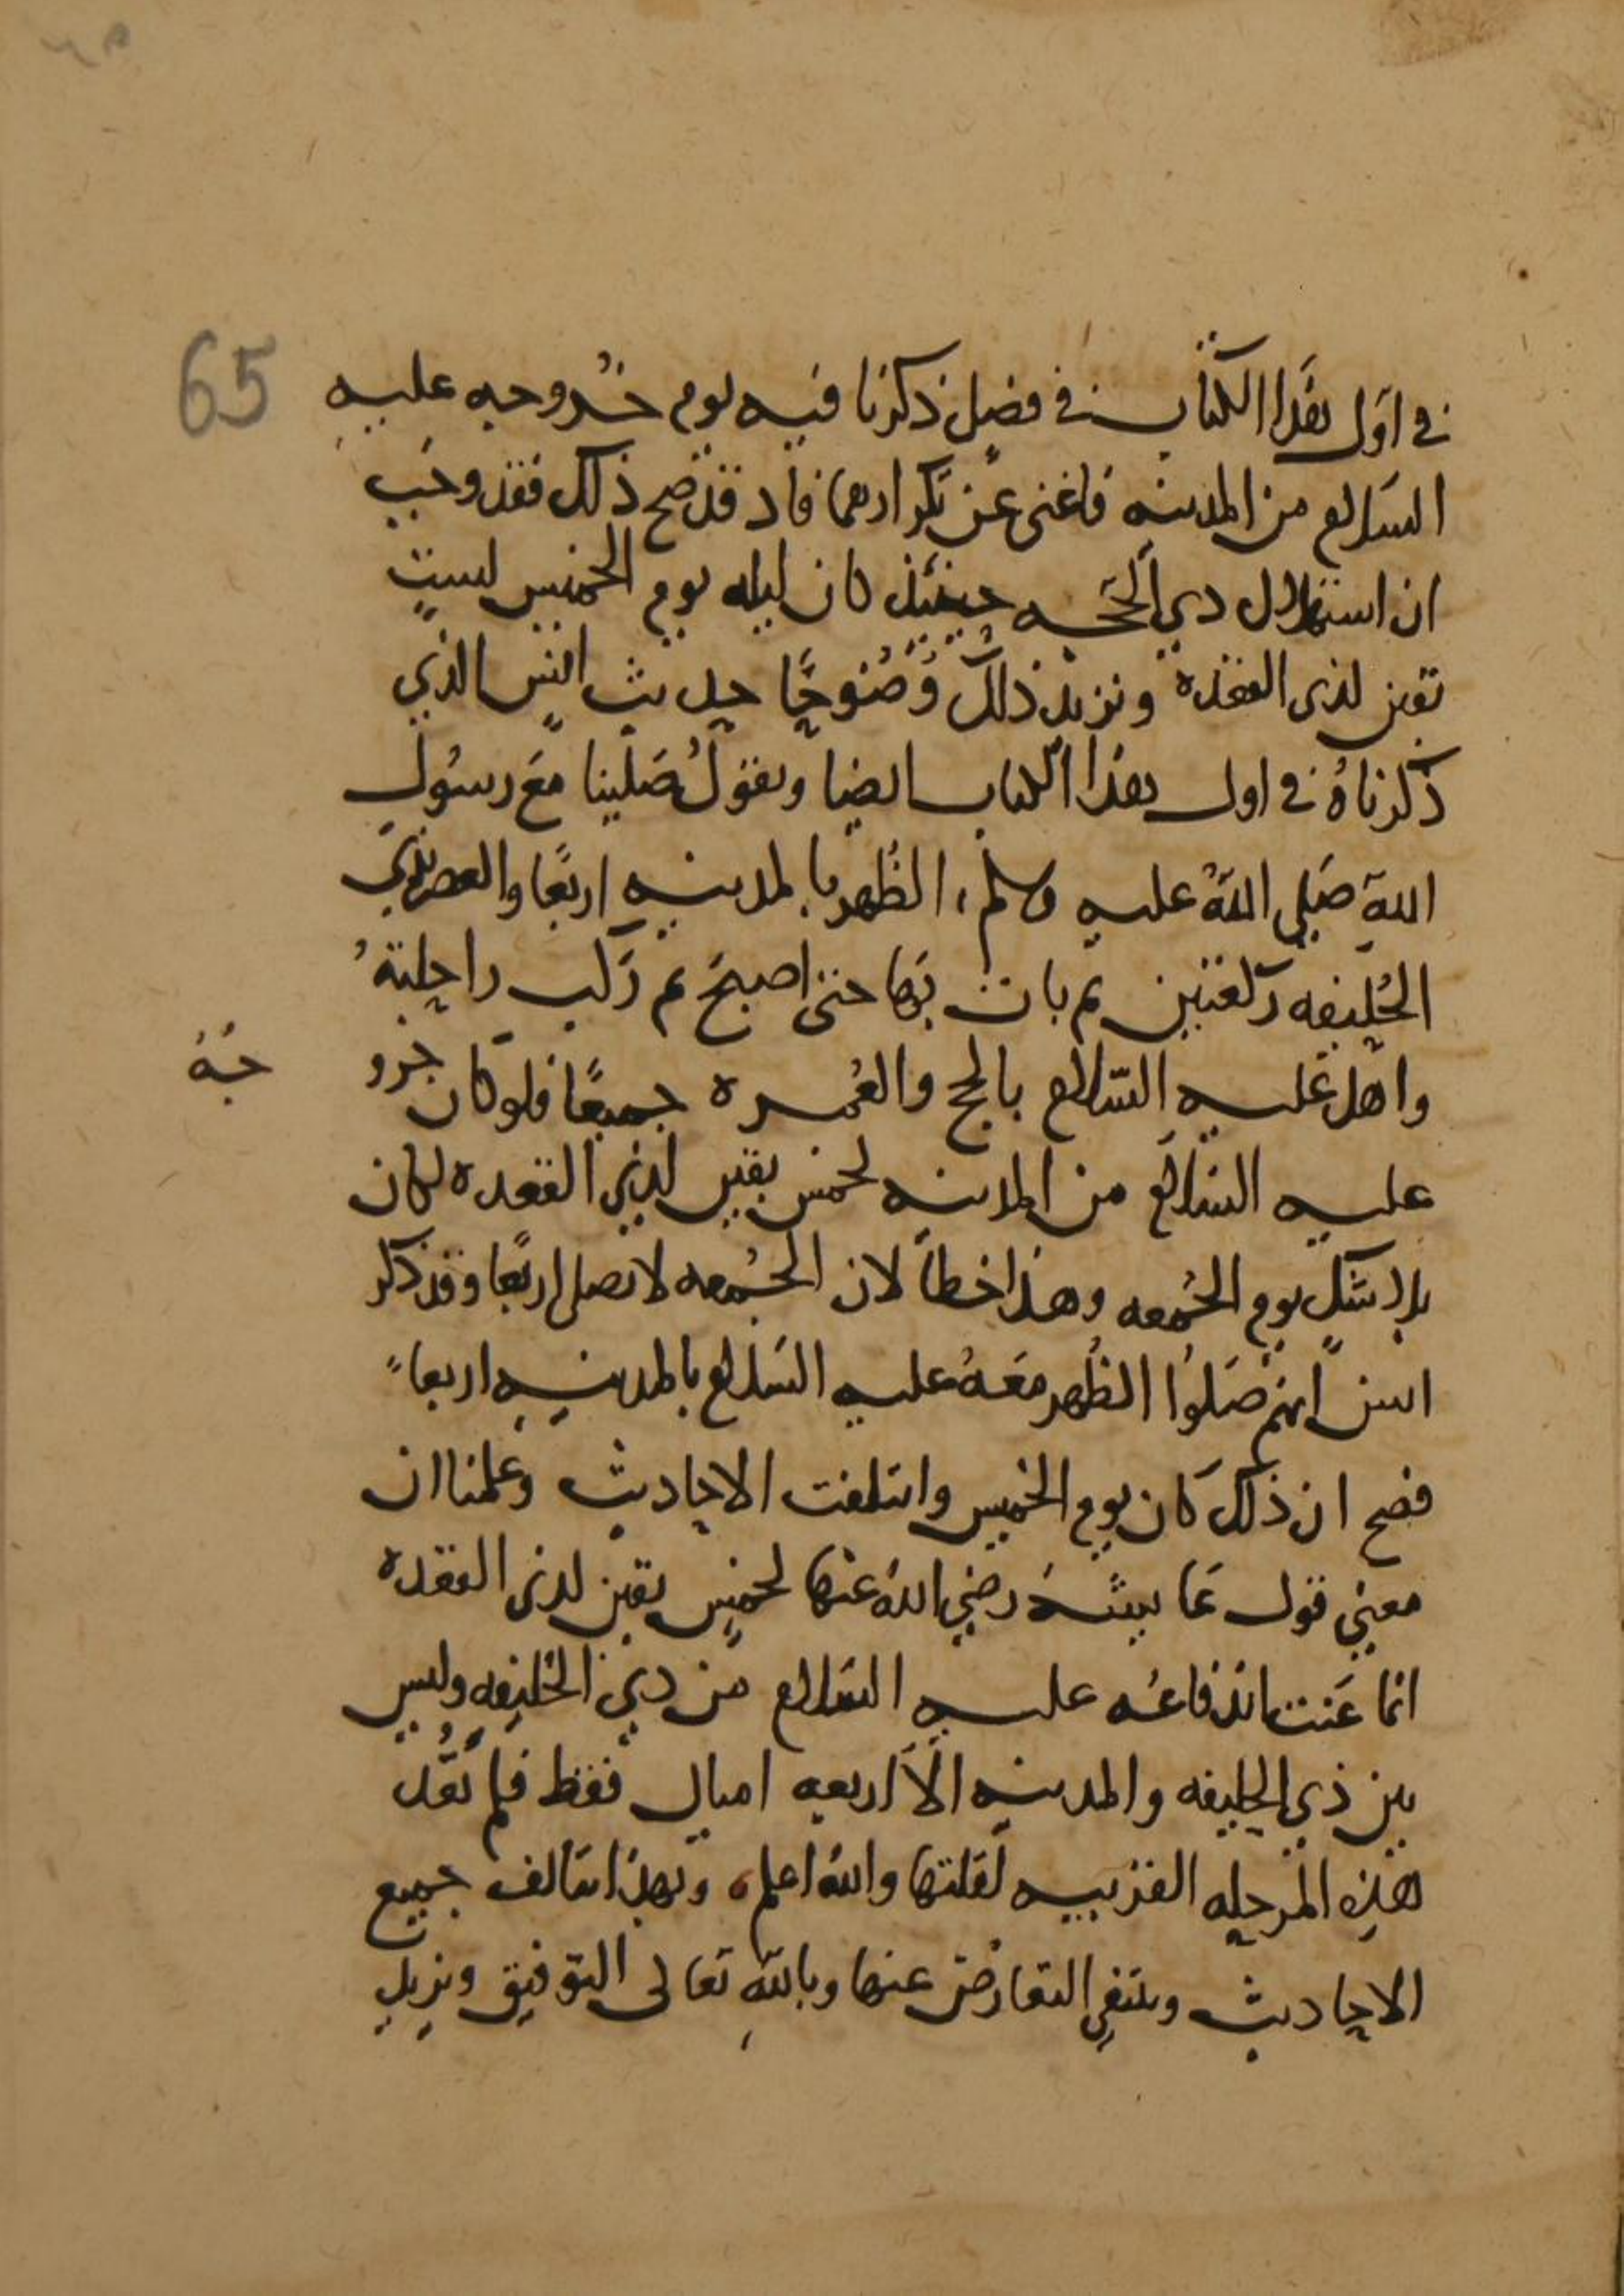 65
في اول هذا الكتاب في فصل ذكرنا فيه يوم خروجه عليه
السلام من المدينه فاغنى عن تكرارهما فاد قد صح ذلك فقد وجب
ان استهلال دي الحجه حينئذ كان ليله يوم الخميس لست
بقين لذى القعده ونزيد ذلك وضوحًا حديث انس الذي
ذكرناهُ في اول هذا الكتاب ايضا وهو قولُ صَلينا مَع رسُول
اللهِ صَلى اللهُ عليه وسلم، الظُهر بالمدينه اربعًا والعصر بذي
الحُليفه ركعتين ثم بات بها حتى اصبحَ ثم رَكب راحلتهُ
واهل عليه السّلام بالحج والعُمره جميعًا فلو كان خرو
جُهُ
عليه السلام من المدينه لخمس بقين لذي القعده لكان
بلا شكٍ يوم الجُمعه وهذا خطأ لان الجُمعه لا تصلى اربعًا وقد ذكر
انس انهم صَلوُا الظُهر معَهُ عليه السَلام بالمدينهِ اربعاً
فصح ان ذلكَ كان يوم الخميس وائتلفت الاحاديث وعلمنا ان
معنى قول عَايشَهَ رضي اللهُ عنها لخمسٍ بقين لذى القعده
انما عَنت اندفاعَه عليه السَلام من دي الحُليفهِ وليس
بين ذي الحليفه والمدينه الاَّ اربعه اميال فقط فلم تُعّد
هذه المرحله القريبه لقلتها والله اعلم، وبهذا تتالف جميع
الاحاديث وينتفي التعارُض عنها وباللهِ تعالى التوفيق ونزيد